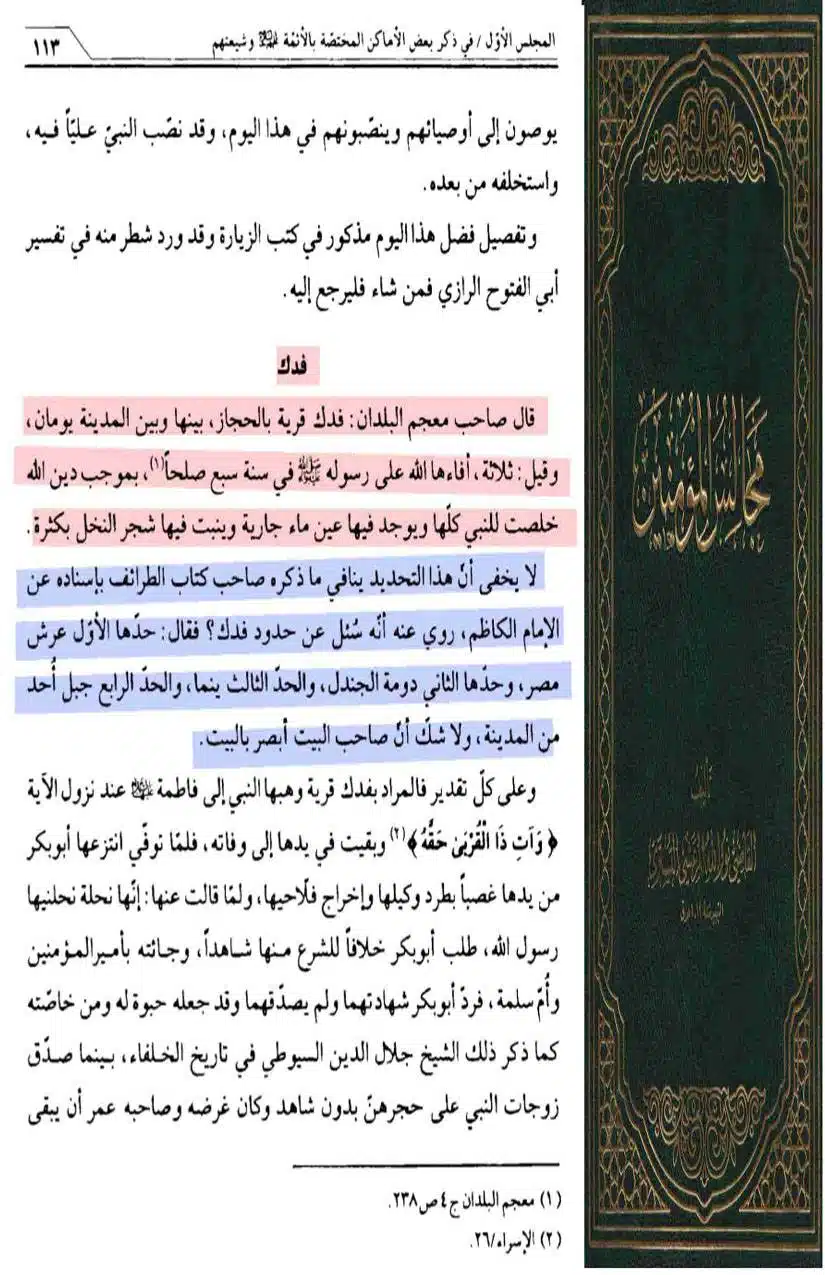 المجلس الأوّل / في ذكر بعض الأماكن المختصّة بالأئمّة ﷺ وشيعتهم
١١٣
يوصون إلى أوصيائهم وينصّبونهم في هذا اليوم، وقد نصّب النبيّ عليّاً فيه،
واستخلفه من بعده.
وتفصيل فضل هذا اليوم مذكور في كتب الزيارة وقد ورد شطر منه في تفسير
أبي الفتوح الرازي فمن شاء فليرجع إليه.
فدك
قال صاحب معجم البلدان: فدك قرية بالحجاز، بينها وبين المدينة يومان،
وقيل: ثلاثة، أفاءها الله على رسوله ﷺ في سنة سبع صلحاً(١)، بموجب دين الله
خلصت للنبي كلّها ويوجد فيها عين ماء جارية وينبت فيها شجر النخل بكثرة.
لا يخفى أنّ هذا التحديد ينافي ما ذكره صاحب كتاب الطرائف بإسناده عن
الإمام الكاظم، روي عنه أنّه سُئل عن حدود فدك؟ فقال: حدّها الأوّل عرش
مصر، وحدّها الثاني دومة الجندل، والحدّ الثالث ينما، والحدّ الرابع جبل أُحد
من المدينة، ولا شكّ أنّ صاحب البيت أبصر بالبيت.
وعلى كلّ تقدير فالمراد بفدك قرية وهبها النبي إلى فاطمة عند نزول الآية
﴿وَآتِ ذَا الْقُرْبىٰ حَقَّهُ﴾(٢) وبقيت في يدها إلى وفاته، فلمّا توفّي انتزعها أبوبكر
من يدها غصباً بطرد وكيلها وإخراج فلّاحيها، ولمّا قالت عنها: إنّها نحلة نحلنيها
رسول الله، طلب أبوبكر خلافاً للشرع منها شاهداً، وجائته بأميرالمؤمنين
وأُمّ سلمة، فردّ أبوبكر شهادتهما ولم يصدّقهما وقد جعله حبوة له ومن خاصّته
كما ذكر ذلك الشيخ جلال الدين السيوطي في تاريخ الخلفاء، بينما صدّق
زوجات النبي على حجرهنّ بدون شاهد وكان غرضه وصاحبه عمر أن يبقى
(١) معجم البلدان ج٤ ص٢٣٨.
(٢) الإسراء/٢٦.
مجالس المؤمنين
تأليف